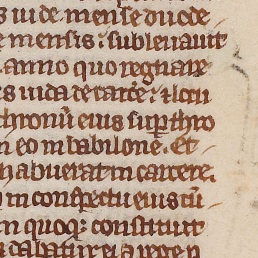 s iude mense duode
e mensis: subleuauit
. anno quo regnare
s iuda de carce. & locu
chronū eius sup thro
n eo in babilone. Et
habuerat in carcere.
in conspectu eius cū
n quoq: constituit
a rege n